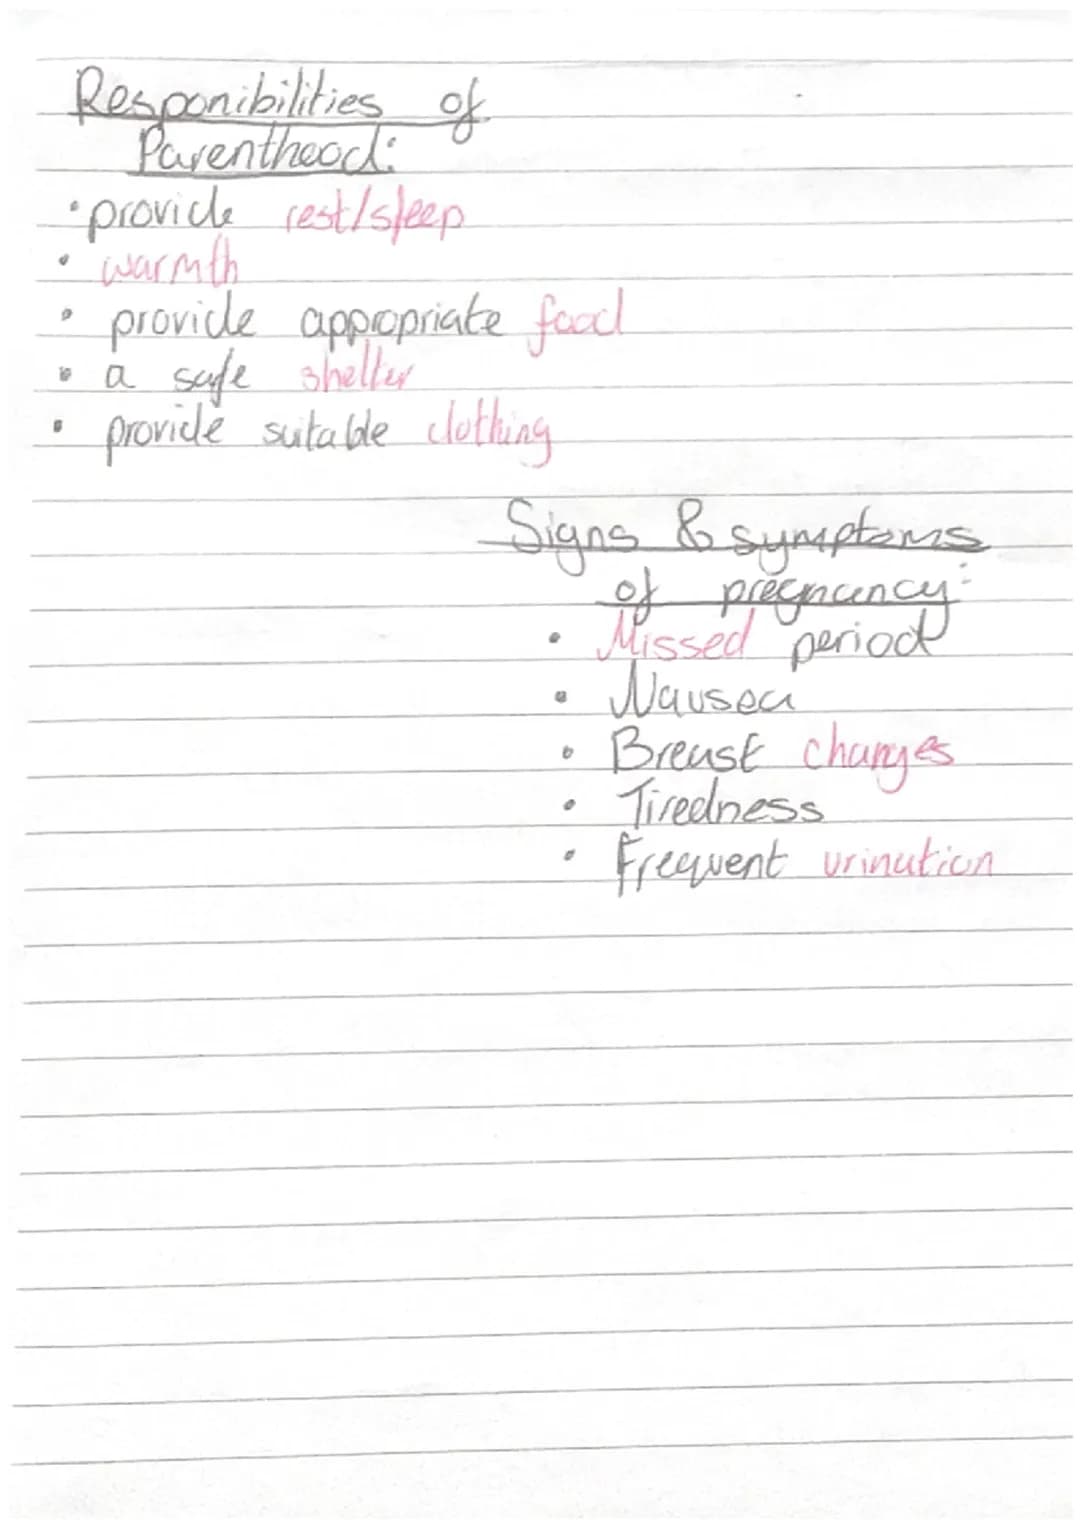 Responibilities of
Parenthood:
• provide rest/sleep
• warmth
• provide appropriate food
• a safe shelter
• provide suitable clothing
Signs & symptoms
of pregnancy:
• Missed period
• Nausea
• Breast changes
• Tiredness
• Frequent urination